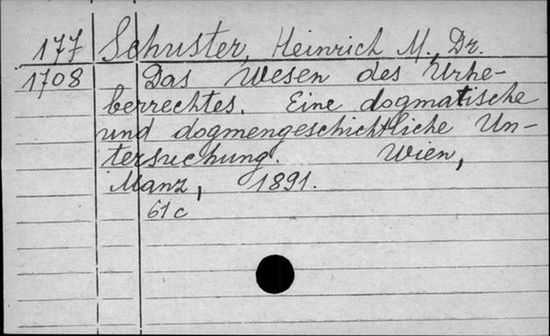 177 Schuster, Heinrich M., Dr.
1708 Das Wesen des Urhe-
berrechtes. Eine dogmatische
und dogmengeschichtliche Un-
tersuchung. Wien,
Manz, 1891.
61c